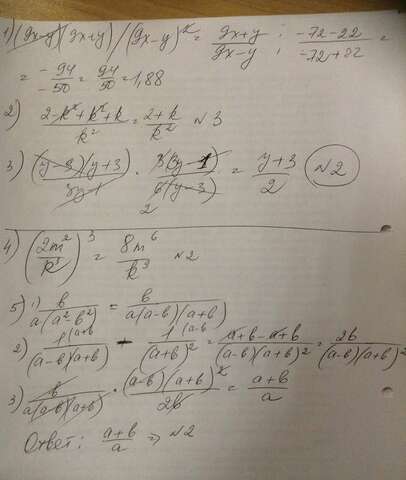 1) (9x-y)(9x+y)/(9x-y)² = (9x+y)/(9x-y) ; (-72-22)/(-72+22) =
= -94/-50 = 94/50 = 1,88
2) (2-k²+k²+k)/k² = (2+k)/k² №3
3) (y-3)(y+3)/(3y-1) · 3(3y-1)/6(y-3) = (y+3)/2 №2
2
4) (2m²/k)³ = 8m⁶/k³ №2
5) 1) b/a(a²-b²) = b/a(a-b)(a+b)
2) 1(a+b)/(a-b)(a+b) - 1(a-b)/(a+b)² = (a+b-a+b)/(a-b)(a+b)² = 2b/(a-b)(a+b)²
3) b/a(a-b)(a+b) · (a-b)(a+b)²/2b = (a+b)/a
Ответ: (a+b)/a => №2